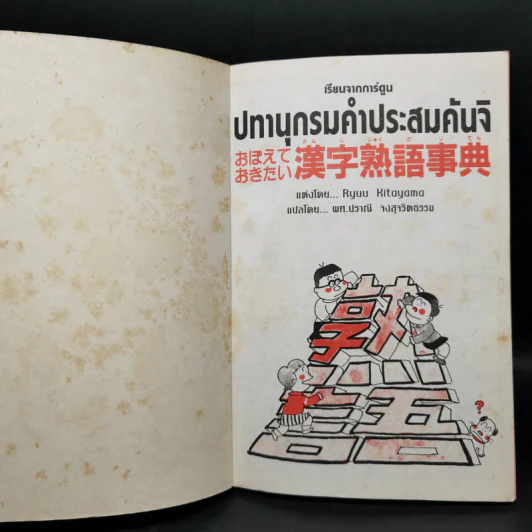 เรียนจากการ์ตูน
ปทานุกรมคำประสมคันจิ
おぼえて
おきたい
漢字熟語事典
かん じ じゅく ご じ てん
แต่งโดย... Ryuu Kitayama
แปลโดย... ผศ.ปราณี จงสุจริตธรรม
熟
語
?